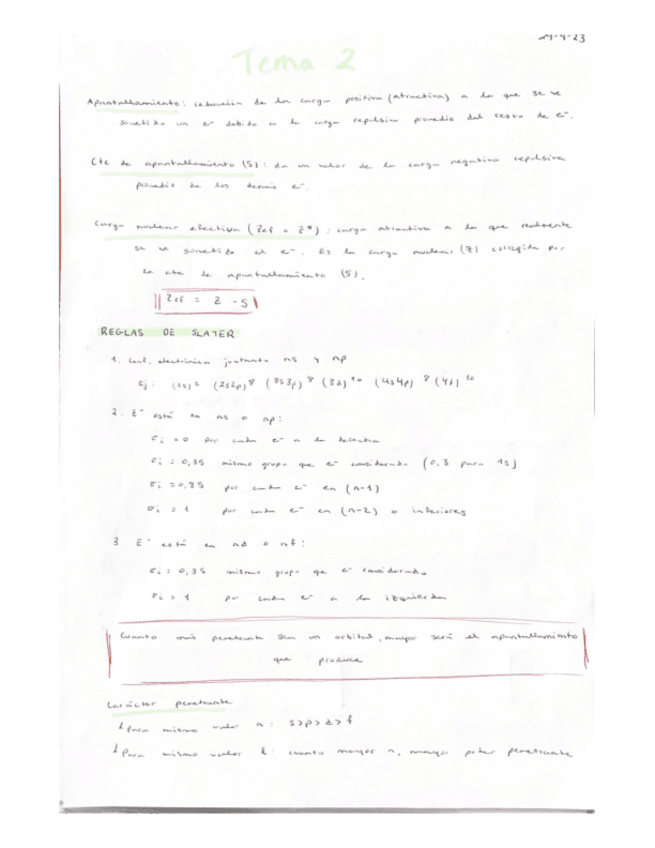 29-9-23
Tema 2
Apantallamiento: reducción de la carga positiva (atractiva) a la que se ve
sometido un e⁻ debido a la carga repulsiva promedio del resto de e⁻.
Cte de apantallamiento (S): da un valor de la carga negativa repulsiva
promedio de los demás e⁻.
Carga nuclear efectiva (Zef = Z*): carga atractiva a la que realmente
se ve sometido el e⁻. Es la carga nuclear (Z) corregida por
la cte de apantallamiento (S).
Zef = Z - S
REGLAS DE SLATER
1. Conf. electrónica juntando ns y np
Ej: (1s)² (2s2p)⁸ (3s3p)⁸ (3d)¹⁰ (4s4p)⁸ (4d)¹⁰
2. E⁻ está en ns o np:
σi = 0 por cada e⁻ a la derecha
σi = 0,35 mismo grupo que e⁻ considerado (0,3 para 1s)
σi = 0,85 por cada e⁻ en (n-1)
σi = 1 por cada e⁻ en (n-2) o inferiores
3 E⁻ está en nd o nf:
σi = 0,35 mismo grupo que e⁻ considerado
σi = 1 por cada e⁻ a la izquierda
Cuanto más penetrante sea un orbital, mayor será el apantallamiento
que produce
Carácter penetrante
↳ Para mismo valor n: s>p>d>f
↳ Para mismo valor l: cuanto mayor n, mayor poder penetrante